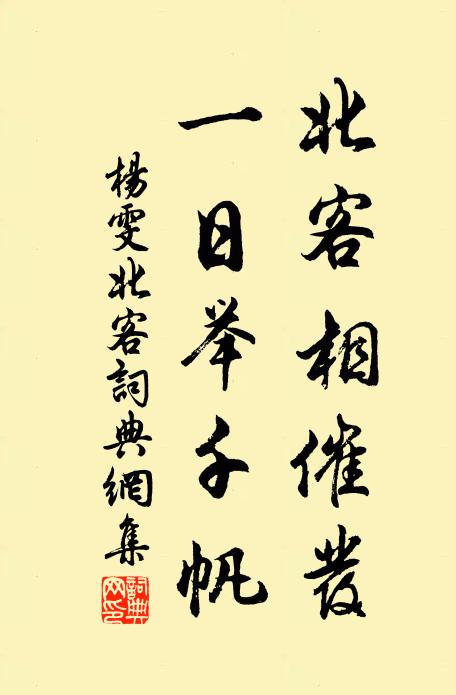 北客相催發
一日举千帆
楊雯北客詞典網集
詞典网印